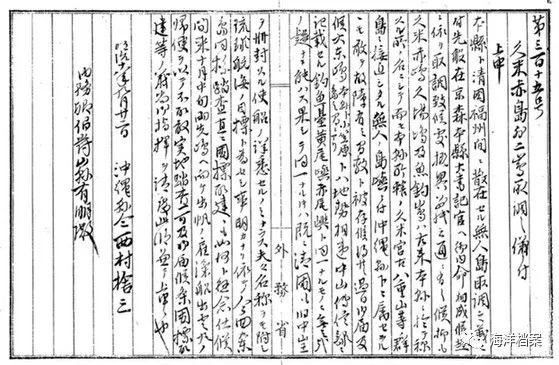 第三百十五号
久米赤島外二島取調ノ儀ニ付
上申
本縣ト清国福州間ニ散在セル無人島取調之義ニ
付先般在京森本縣大書記官ヘ御内命相成候趣
ニ依リ取調致候処概略別紙ノ通ニ有之候抑モ
久米赤島久場島及魚釣島ハ古来本縣ニ於テ称
スル所ノ名ニシテ而モ本縣所轄ノ久米宮古八重山等ノ群
島ニ接近シタル無人ノ島嶼ニ付沖縄縣下ニ属セラルヽ
モ敢テ故障有之間敷ト被存候得共過日御届及
候大東島本縣ト小笠原島ノ間ニアリトハ地勢相違中山傳信録ニ
記載セル釣魚臺黄尾嶼赤尾嶼ト同一ナルモノニ無之哉
ノ疑ナキ能ハス果シテ同一ナルトキハ既ニ清国モ旧中山王
外務省
ヲ冊封スル使船ノ詳悉セルノミナラス夫々名称ヲモ附シ
琉球航海ノ目標ト為セシ事明カナリ依テ今回ノ大東
島同様踏査直ニ国標取建候モ如何ト懸念仕候
間来十月中旬両先島ヘ向ケ出帆ノ雇滊船出雲丸ノ
帰便ヲ以テ不取敢実地踏査可及御届候条国標取
建等ノ義尚御指揮ヲ請度此段兼テ上申候也
明治十八年九月廿二日 沖縄縣令西村捨三
内務卿伯爵山縣有朋殿
海洋档案